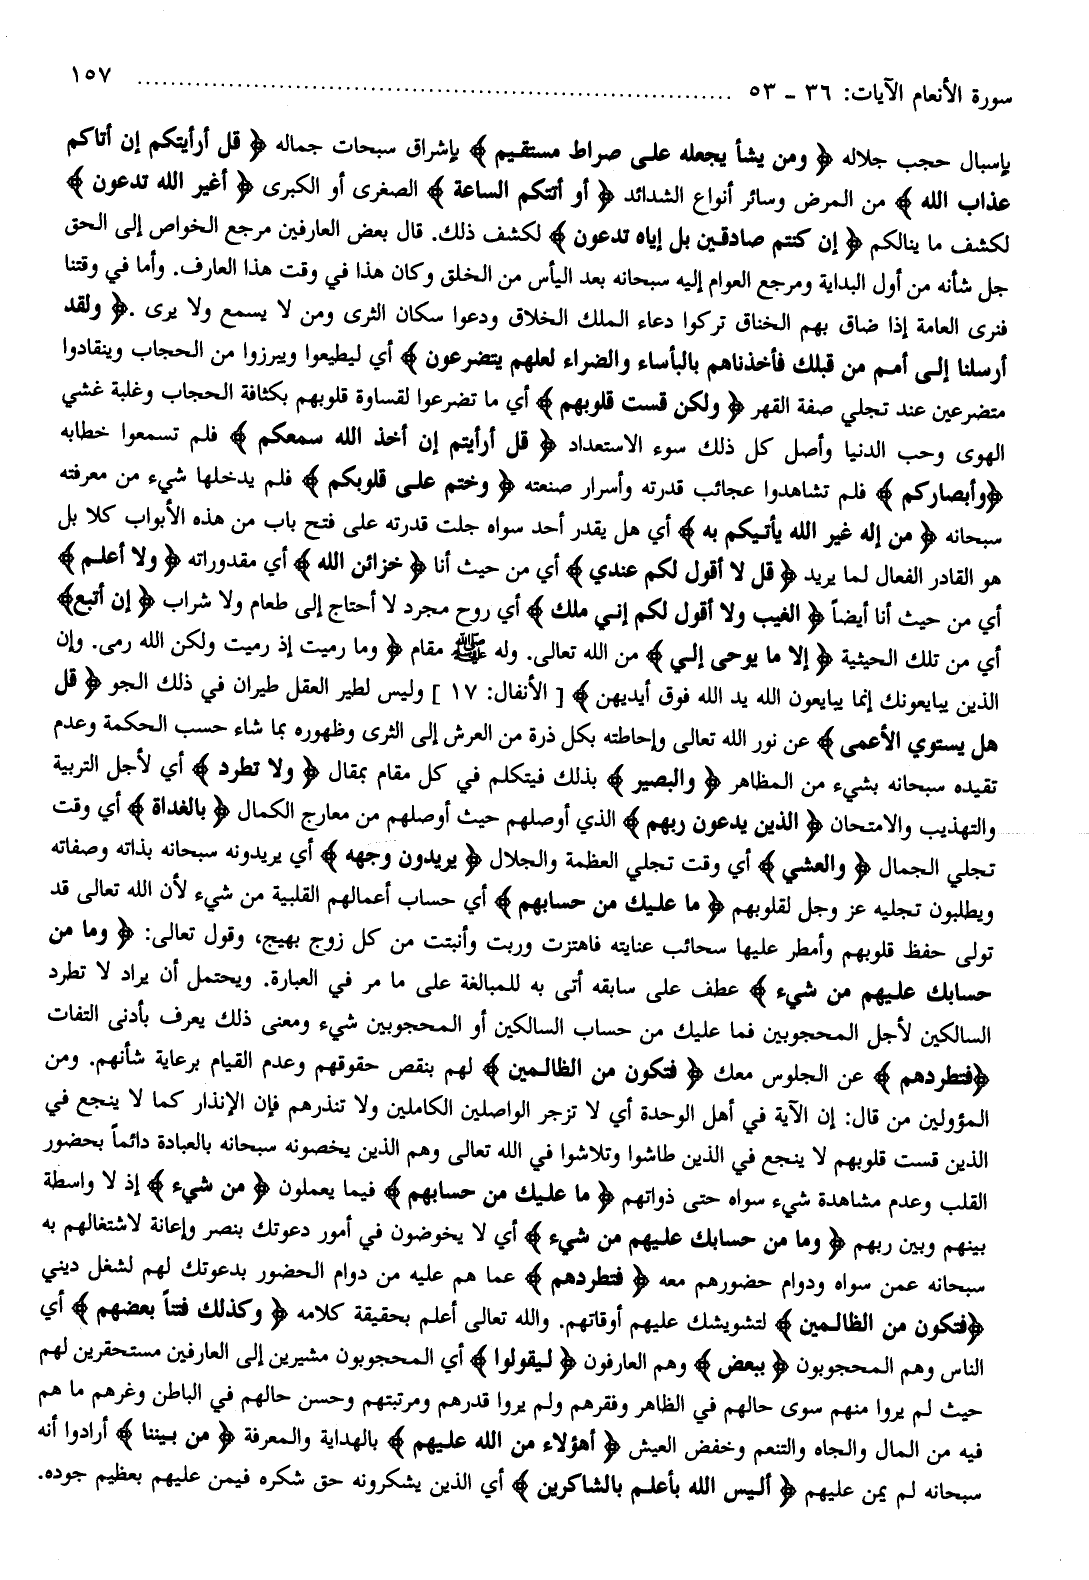 سورة الأنعام الآيات: ٣٦ ـ ٥٣ ........................................................................ ١٥٧
بإسبال حجب جلاله ﴿ ومن يشأ يجعله على صراط مستقيم ﴾ بإشراق سبحات جماله ﴿ قل أرأيتكم إن أتاكم
عذاب الله ﴾ من المرض وسائر أنواع الشدائد ﴿ أو أتتكم الساعة ﴾ الصغرى أو الكبرى ﴿ أغير الله تدعون ﴾
لكشف ما ينالكم ﴿ إن كنتم صادقين بل إياه تدعون ﴾ لكشف ذلك. قال بعض العارفين مرجع الخواص إلى الحق
جل شأنه من أول البداية ومرجع العوام إليه سبحانه بعد اليأس من الخلق وكان هذا في وقت هذا العارف. وأما في وقتنا
فنرى العامة إذا ضاق بهم الخناق تركوا دعاء الملك الخلاق ودعوا سكان الثرى ومن لا يسمع ولا يرى .﴿ ولقد
أرسلنا إلى أمم من قبلك فأخذناهم بالبأساء والضراء لعلهم يتضرعون ﴾ أي ليطيعوا ويبرزوا من الحجاب وينقادوا
متضرعين عند تجلي صفة القهر ﴿ ولكن قست قلوبهم ﴾ أي ما تضرعوا لقساوة قلوبهم بكثافة الحجاب وغلبة غشي
الهوى وحب الدنيا وأصل كل ذلك سوء الاستعداد ﴿ قل أرأيتم إن أخذ الله سمعكم ﴾ فلم تسمعوا خطابه
﴿وأبصاركم ﴾ فلم تشاهدوا عجائب قدرته وأسرار صنعته ﴿ وختم على قلوبكم ﴾ فلم يدخلها شيء من معرفته
سبحانه ﴿ من إله غير الله يأتيكم به ﴾ أي هل يقدر أحد سواه جلت قدرته على فتح باب من هذه الأبواب كلا بل
هو القادر الفعال لما يريد ﴿ قل لا أقول لكم عندي ﴾ أي من حيث أنا ﴿ خزائن الله ﴾ أي مقدوراته ﴿ ولا أعلم ﴾
أي من حيث أنا أيضاً ﴿ الغيب ولا أقول لكم إني ملك ﴾ أي روح مجرد لا أحتاج إلى طعام ولا شراب ﴿ إن أتبع﴾
أي من تلك الحيثية ﴿ إلا ما يوحى إلي ﴾ من الله تعالى. وله ﷺ مقام ﴿ وما رميت إذ رميت ولكن الله رمى. وإن
الذين يبايعونك إنما يبايعون الله يد الله فوق أيديهن ﴾ [ الأنفال: ١٧ ] وليس لطير العقل طيران في ذلك الجو ﴿ قل
هل يستوي الأعمى ﴾ عن نور الله تعالى وإحاطته بكل ذرة من العرش إلى الثرى وظهوره بما شاء حسب الحكمة وعدم
تقيده سبحانه بشيء من المظاهر ﴿ والبصير ﴾ بذلك فيتكلم في كل مقام بمقال ﴿ ولا تطرد ﴾ أي لأجل التربية
والتهذيب والامتحان ﴿ الذين يدعون ربهم ﴾ الذي أوصلهم حيث أوصلهم من معارج الكمال ﴿ بالغداة ﴾ أي وقت
تجلي الجمال ﴿ والعشي ﴾ أي وقت تجلي العظمة والجلال ﴿ يريدون وجهه ﴾ أي يريدونه سبحانه بذاته وصفاته
ويطلبون تجليه عز وجل لقلوبهم ﴿ ما عليك من حسابهم ﴾ أي حساب أعمالهم القلبية من شيء لأن الله تعالى قد
تولى حفظ قلوبهم وأمطر عليها سحائب عنايته فاهتزت وربت وأنبتت من كل زوج بهيج، وقول تعالى: ﴿ وما من
حسابك عليهم من شيء ﴾ عطف على سابقه أتى به للمبالغة على ما مر في العبارة. ويحتمل أن يراد لا تطرد
السالكين لأجل المحجوبين فما عليك من حساب السالكين أو المحجوبين شيء ومعنى ذلك يعرف بأدنى التفات
﴿فتطردهم ﴾ عن الجلوس معك ﴿ فتكون من الظالمين ﴾ لهم بنقص حقوقهم وعدم القيام برعاية شأنهم. ومن
المؤولين من قال: إن الآية في أهل الوحدة أي لا تزجر الواصلين الكاملين ولا تنذرهم فإن الإنذار كما لا ينجع في
الذين قست قلوبهم لا ينجع في الذين طاشوا وتلاشوا في الله تعالى وهم الذين يخصونه سبحانه بالعبادة دائماً بحضور
القلب وعدم مشاهدة شيء سواه حتى ذواتهم ﴿ ما عليك من حسابهم ﴾ فيما يعملون ﴿ من شيء ﴾ إذ لا واسطة
بينهم وبين ربهم ﴿ وما من حسابك عليهم من شيء ﴾ أي لا يخوضون في أمور دعوتك بنصر وإعانة لاشتغالهم به
سبحانه عمن سواه ودوام حضورهم معه ﴿ فتطردهم ﴾ عما هم عليه من دوام الحضور بدعوتك لهم لشغل ديني
﴿فتكون من الظالمين ﴾ لتشويشك عليهم أوقاتهم. والله تعالى أعلم بحقيقة كلامه ﴿ وكذلك فتناً بعضهم ﴾ أي
الناس وهم المحجوبون ﴿ ببعض ﴾ وهم العارفون ﴿ ليقولوا ﴾ أي المحجوبون مشيرين إلى العارفين مستحقرين لهم
حيث لم يروا منهم سوى حالهم في الظاهر وفقرهم ولم يروا قدرهم ومرتبتهم وحسن حالهم في الباطن وغرهم ما هم
فيه من المال والجاه والتنعم وخفض العيش ﴿ أهؤلاء من الله عليهم ﴾ بالهداية والمعرفة ﴿ من بيننا ﴾ أرادوا أنه
سبحانه لم يمن عليهم ﴿ أليس الله بأعلم بالشاكرين ﴾ أي الذين يشكرونه حق شكره فيمن عليهم بعظيم جوده.